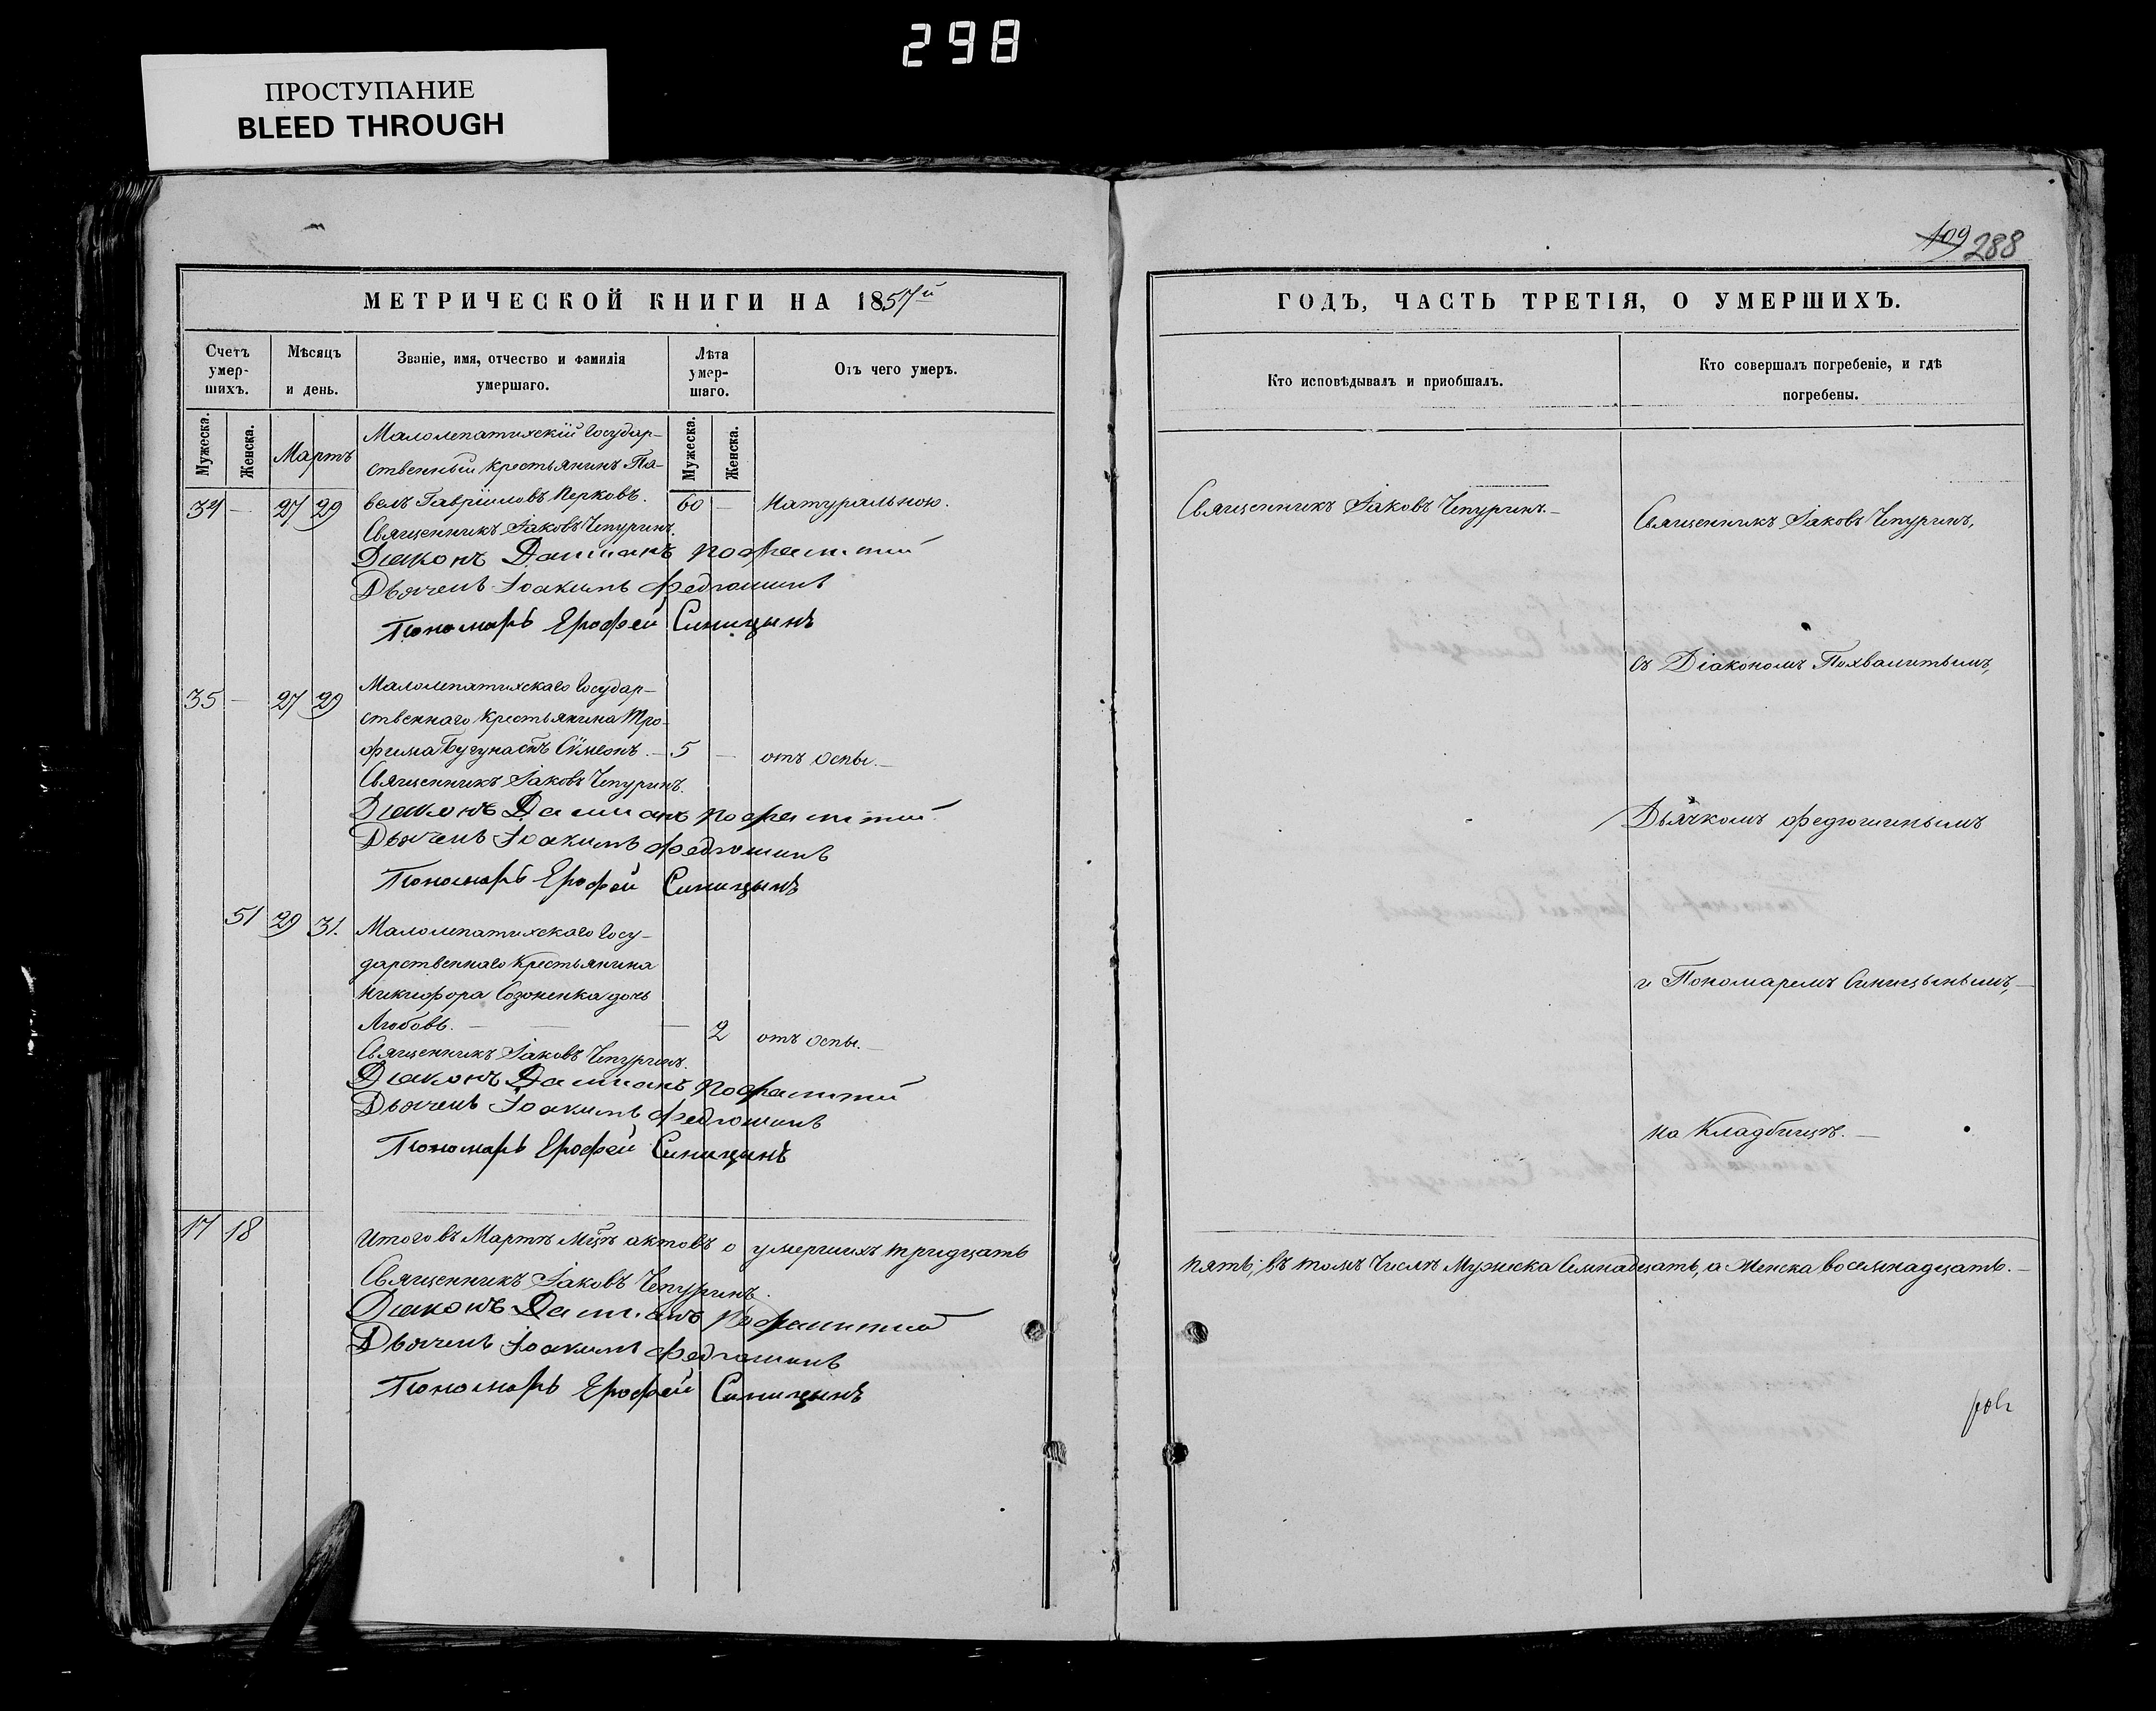 298
ПРОСТУПАНИЕ
BLEED THROUGH
109 288
МЕТРИЧЕСКОЙ КНИГИ НА 1857й
Счетъ умер-шихъ.
Мѣсяцъ и день.
Званіе, имя, отчество и фамилія умершаго.
Лѣта умер-шаго.
Отъ чего умеръ.
Мужеска.
Женска.
Мартъ
Мужеска.
Женска.
Малолепатихскій Государ-
ственный крестьянинъ Па-
34 — 27 29 велъ Гавріиловъ Перковъ. 60 — Натуральною.
Священникъ Іаковъ Чепуринъ.
Діаконъ Даміанъ
Дьячекъ Іоакимъ Федюшинъ
Пономарь Ерофей Синицынъ
Малолепатихскаго Государ-
35 — 27 29 ственнаго крестьянина Тро-
фима сынъ Сѵмеонъ. — 5 — отъ оспы. —
Священникъ Іаковъ Чепуринъ.
Діаконъ Даміанъ
Дьячекъ Іоакимъ Федюшинъ
Пономарь Ерофей Синицынъ
51 29 31. Малолепатихскаго Госу-
дарственнаго крестьянина
Никифора Созоненка дочь
Любовь. — — — 2 отъ оспы. —
Священникъ Іаковъ Чепуринъ.
Діаконъ Даміанъ
Дьячекъ Іоакимъ Федюшинъ
Пономарь Ерофей Синицынъ
17 18 Итого въ Мартѣ мцѣ актовъ о умершихъ тридцать
Священникъ Іаковъ Чепуринъ.
Діаконъ Даміанъ
Дьячекъ Іоакимъ Федюшинъ
Пономарь Ерофей Синицынъ
ГОДЪ, ЧАСТЬ ТРЕТІЯ, О УМЕРШИХЪ.
Кто исповѣдывалъ и приобщалъ.
Кто совершалъ погребеніе, и гдѣ
погребены.
Священникъ Іаковъ Чепуринъ. —
Священникъ Іаковъ Чепуринъ,
съ Діакономъ Похвалитымъ,
Дьячкомъ Федюшинымъ
и Пономаремъ Синицынымъ, —
на Кладбищѣ. —
пять; въ томъ числѣ Мужеска семнадцать, а Женска восемнадцать. —